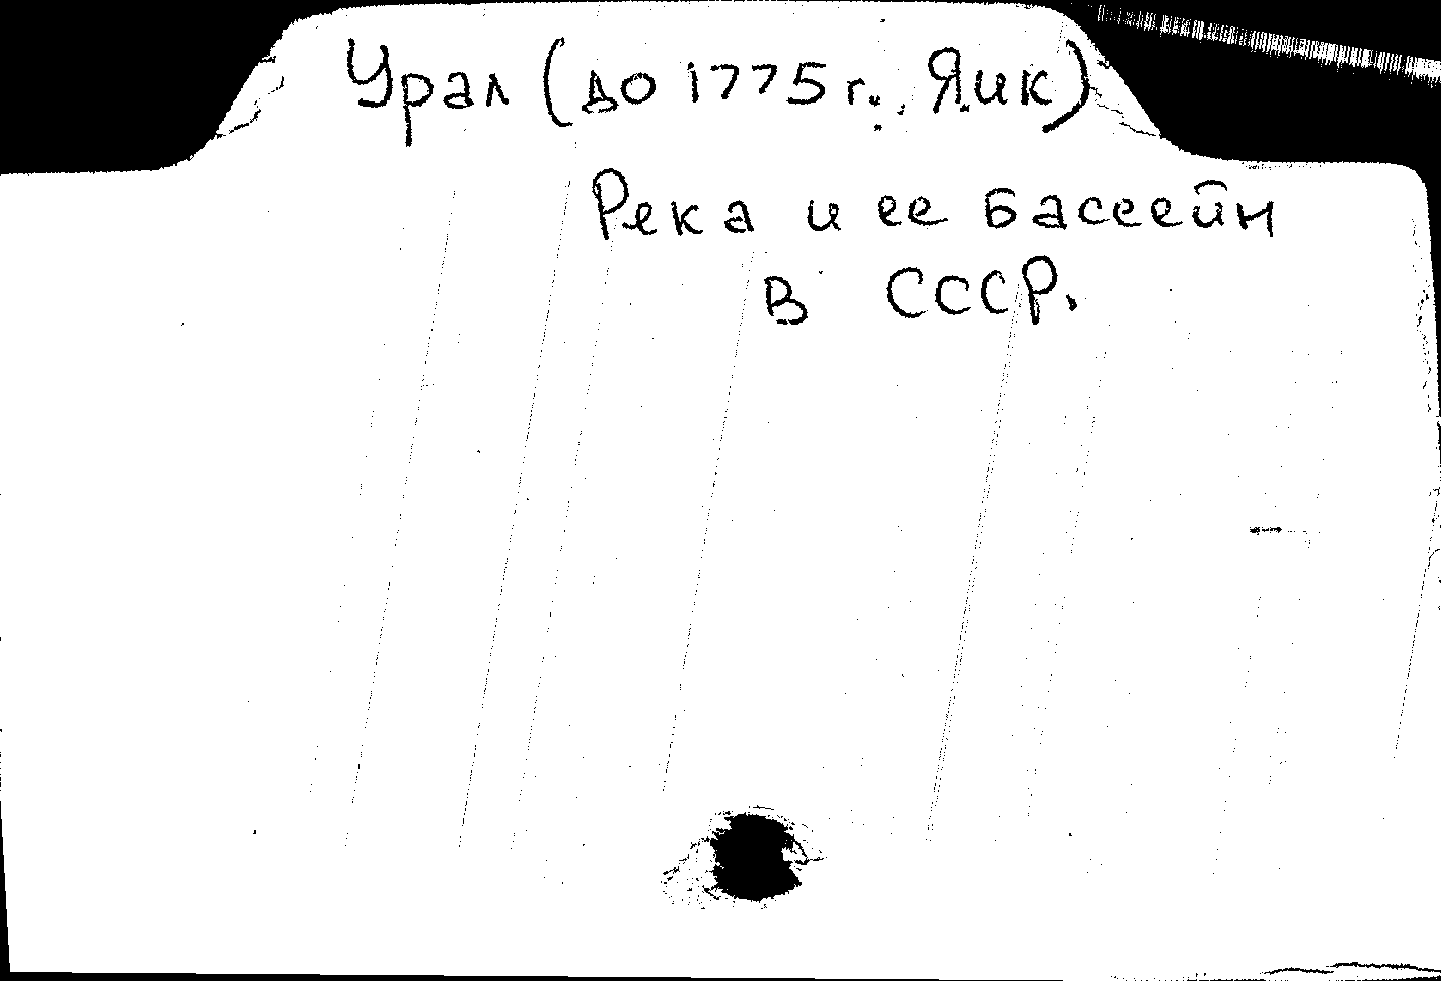 Урал (до 1775 г., Яик)
Река и ее бассейн
в СССР.